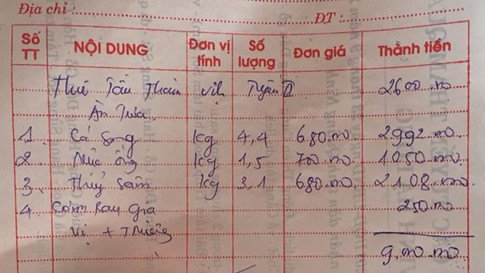 Địa chỉ: ĐT:
Số TT NỘI DUNG Đơn vị tính Số lượng Đơn giá Thành tiền
Thuê Tàu Thăm Vịnh Tuyến II 2600.000
Ăn Trưa
1 Cá Song kg 4,4 680.000 2992.000
2 Mực ống kg 1,5 700.000 1050.000
3 kg 3,1 680.000 2108.000
4 Cơm Rau Gia 250.000
vị +
9.000.000